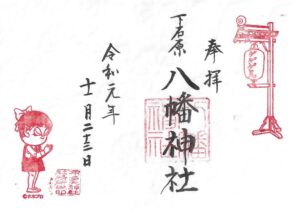 奉拝
下石原
八幡神社
令和元年
十一月二十三日
©水木プロ